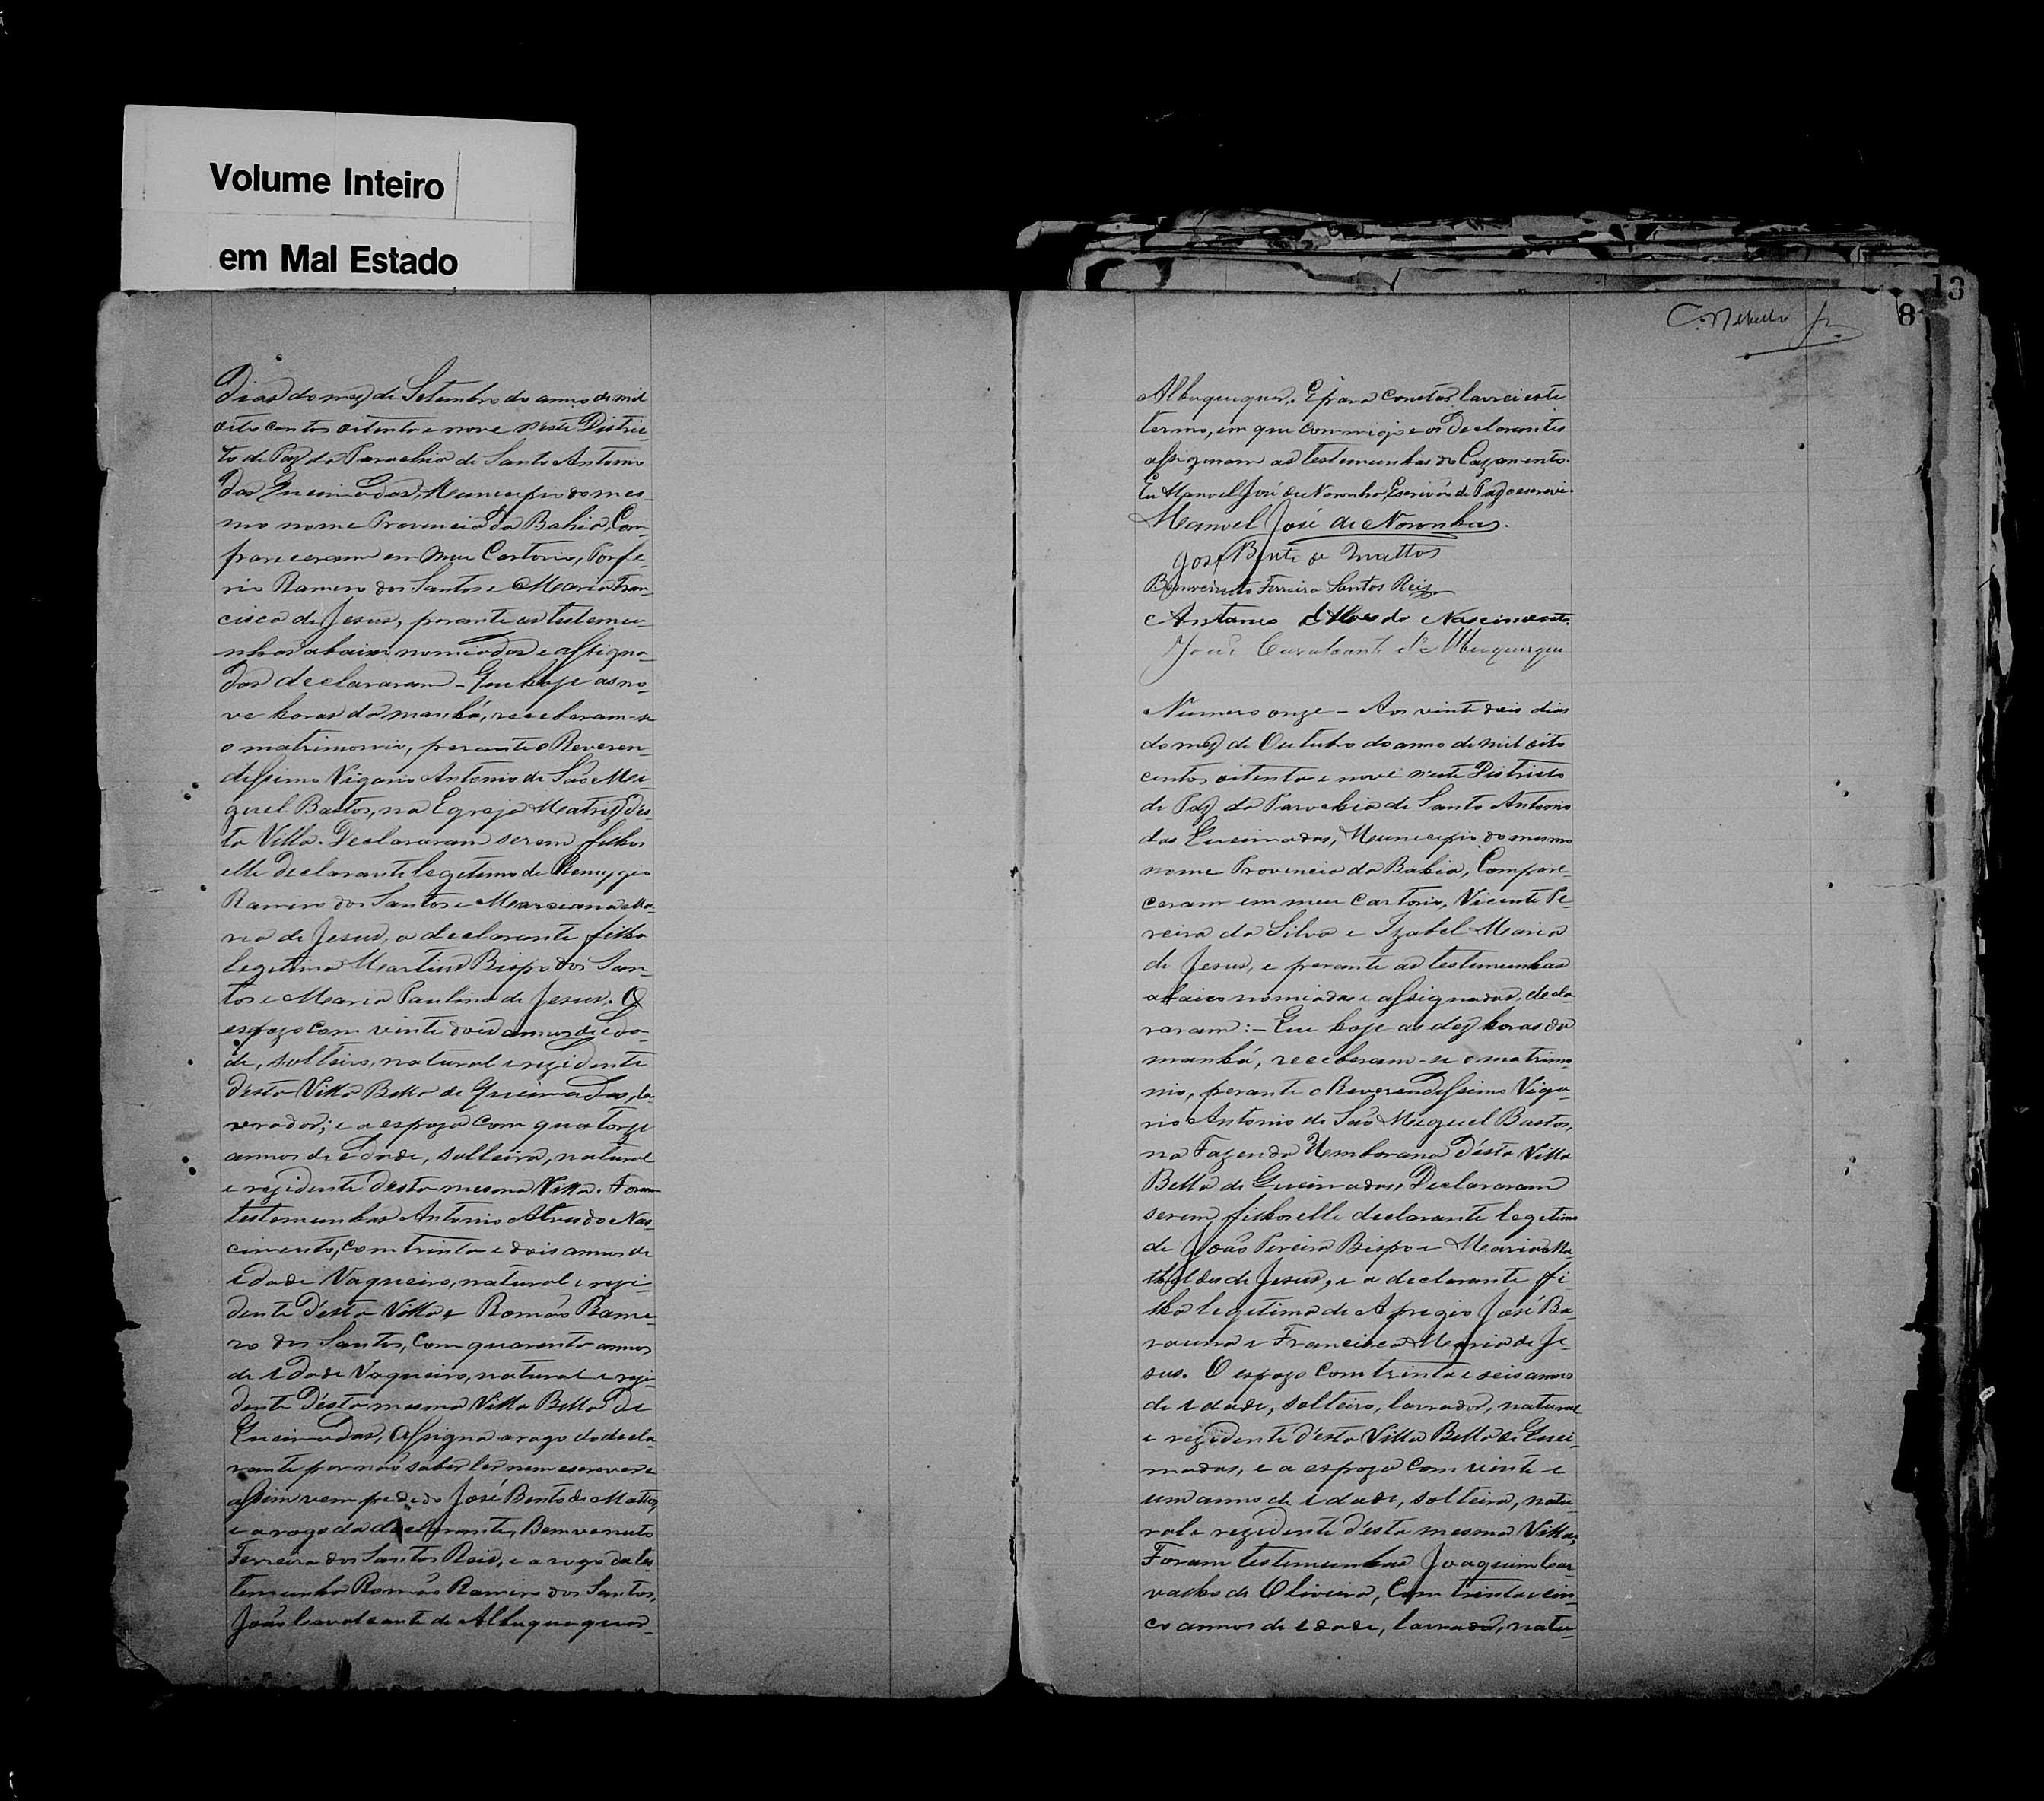 Volume Inteiro
em Mal Estado
Dias do mez de Setembro do anno de mil
oito centos oitenta e nove n'este Distric-
to de Paz da Parochia de Santo Antonio
das Queimadas, Municipio do mes-
mo nome Provincia da Bahia, Com-
pareceram em meu Cartorio, Porfi-
rio Ramero dos Santos e Maria Fran-
cisca de Jesus, perante as testemu-
nhas abaixo nomiadas e assigna-
das declararam - Que hoje as no-
ve horas da manhã, receberam-se
o matrimonio, perante o Reveren-
dissimo Vigario Antonio de São Mi-
guel Bastos, na Egreja Matriz d'es-
ta Villa. Declararam serem filhos
elle declarante legetimo de Remygio
Ramero dos Santos e Marciana Ma-
ria de Jesus, a declarante filha
legitima Martins Bispo dos San-
tos e Maria Paulina de Jesus. O
espozo com vinte dois annos de ida-
de, solteiro, natural e rezidente
desta Villa Bella de Queimadas, la-
vrador; e a espoza com quatorze
annos de idade, solteira, natural
e rezidente desta mesma Villa. Foram
testemunhas Antonio Alves do Nas-
cimento, com trinta e dois annos de
idade Vaqueiro, natural e rezi-
dente D'esta Villa e Romão Rame-
ro dos Santos, com quarenta annos
de idade Vaqueiro, natural e rezi-
dente D'esta mesma Villa Bella de
Queimadas, Assigna a rogo do decla-
rante por não saber ler nem escrever e
assim vem pedido José Bento de Mattos,
e a rogo da declarante, Bemvenuto
Ferreira dos Santos Reis, e a rogo da tes-
temunha Romão Ramero dos Santos,
João Cavalcante de Albuquequer-
8
13
Albuquequer. E para constar lavrei este
termo, em que commigo e os Declarantes
assignam as testemunhas do Cazamento.
Eu Manoel José de Noronha, Escrivão de Paz o escrevi
Manoel José de Noronha.
José Bento de Mattos
Bemvenuto Ferreira Santos Reis
Antonio Alves do Nascimento.
João Cavalcante d'Albuquerque
Numero onze - Aos vinte dois dias
do mez de Outubro do anno de mil oito
centos oitenta e nove n'este Districto
de Paz da Parochia de Santo Antonio
das Queimadas, Municipio do mesmo
nome Provincia da Bahia, Compare-
ceram em meu Cartorio, Vicente Pe-
reira da Silva e Izabel Maria
de Jesus, e perante as testemunhas
abaixo nomiadas e assignadas, decla-
raram: - Que hoje as dez horas da
manhã, receberam-se o matrimo-
nio, perante o Reverendissimo Viga-
rio Antonio de São Miguel Bastos,
na Fazenda Umborana D'esta Villa
Bella de Queimadas, Declararam
serem filhos elle declarante legetimo
de João Pereira Bispo e Maria Ma-
thildes de Jesus, e a declarante fi-
lha legetima de Aprigio José Ba-
rauna e Francisca Maria de Je-
sus. O espozo com trinta e seis annos
de idade, solteiro, lavrador, natural
e rezidente d'esta Villa Bella de Quei-
madas, e a espoza com vinte e
um anno de idade, solteira, natu-
ral e rezidente d'esta mesma Villa,
Foram testemunhas Joaquim Car-
valho de Oliveira, Com trinta e cin-
co annos de idade, lavrador, natu-